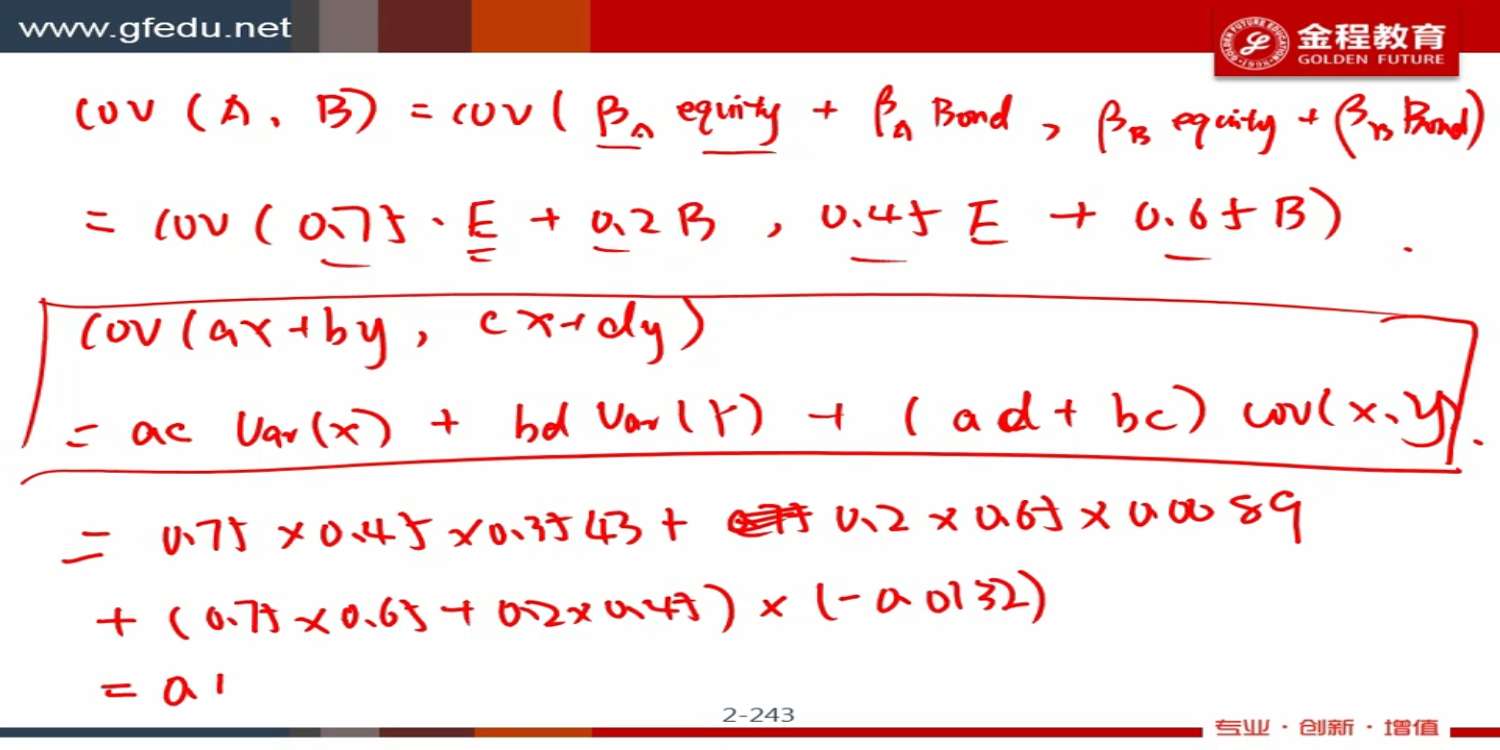 www.gfedu.net
金程教育
GOLDEN FUTURE
COV (A, B) = COV ( βA equity + βA Bond , βB equity + (βB Bond)
= COV ( 0.75 · E + 0.2 B , 0.45 E + 0.65 B ) .
COV (ax+by , cx+dy)
= ac Var(x) + bd Var(Y) + ( ad + bc ) cov(x, y) .
= 0.75 × 0.45 × 0.3543 + 0.2 × 0.65 × 0.0089
+ ( 0.75 × 0.65 + 0.2 × 0.45 ) × (-0.0132)
= 0.1
2-243
专业 · 创新 · 增值